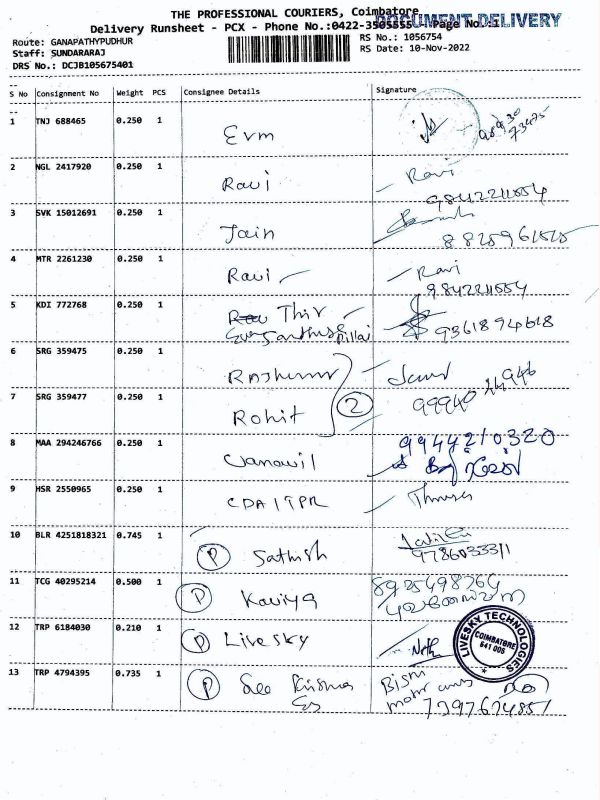 THE PROFESSIONAL COURIERS, Coimbatore
Delivery Runsheet - PCX - Phone No.:0422-3505555 - Page No.:1
DOCUMENT DELIVERY
Route: GANAPATHYPUDHUR
RS No.: 1056754
Staff: SUNDARARAJ
RS Date: 10-Nov-2022
DRS No.: DCJB105675401
S No Consignment No Weight PCS Consignee Details Signature
1 TNJ 688465 0.250 1 Evm
2 NGL 2417920 0.250 1 Ravi Ravi
9842211554
3 SVK 15012691 0.250 1 Jain
8825961515
4 MTR 2261230 0.250 1 Ravi Ravi
9842211554
5 KDI 772768 0.250 1 Thir
Pillai 9361894618
6 SRG 359475 0.250 1
2 99940 24946
7 SRG 359477 0.250 1 Rohit
8 MAA 294246766 0.250 1 Vanavil 9944210320
9 HSR 2550965 0.250 1
10 BLR 4251818321 0.745 1 P Sathish
9786033311
11 TCG 40295214 0.500 1 P Kaviya 8925498764
12 TRP 6184030 0.210 1 P Livesky
LIVESKY TECHNOLOGIES
COIMBATORE
641 006
13 TRP 4794395 0.735 1 P See Krishna Bismi
motor